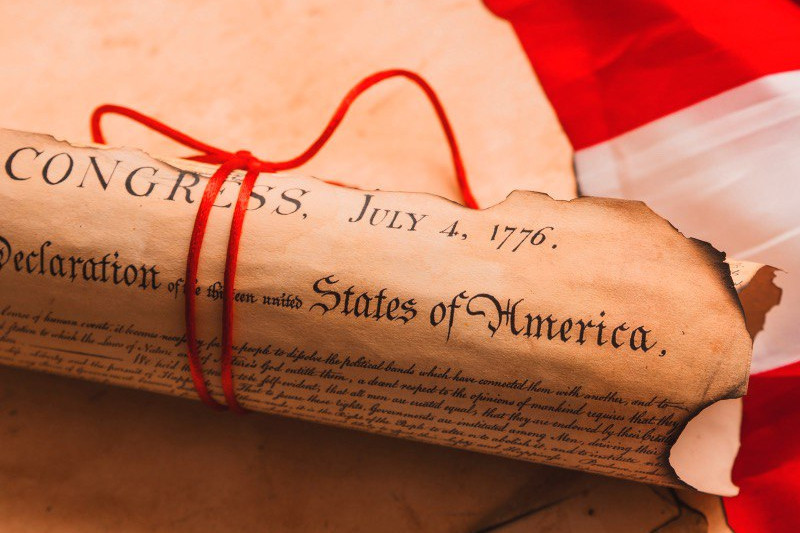 CONGRESS, JULY 4, 1776.
Declaration of the thirteen united States of America,
course of human events, it becomes necessary for people to dissolve the political bands which have connected them with another, and to
station to which the Laws of Nature Nature's God entitle them, a decent respect to the opinions of mankind requires that they
We hold to be self-evident, that all men are created equal, that they are endowed by their
Liberty and the pursuit of Happiness. That to secure these rights, Governments are instituted among Men, deriving their
it is the Right of the People to alter or to abolish it, and to institute
and Happiness. Prudence